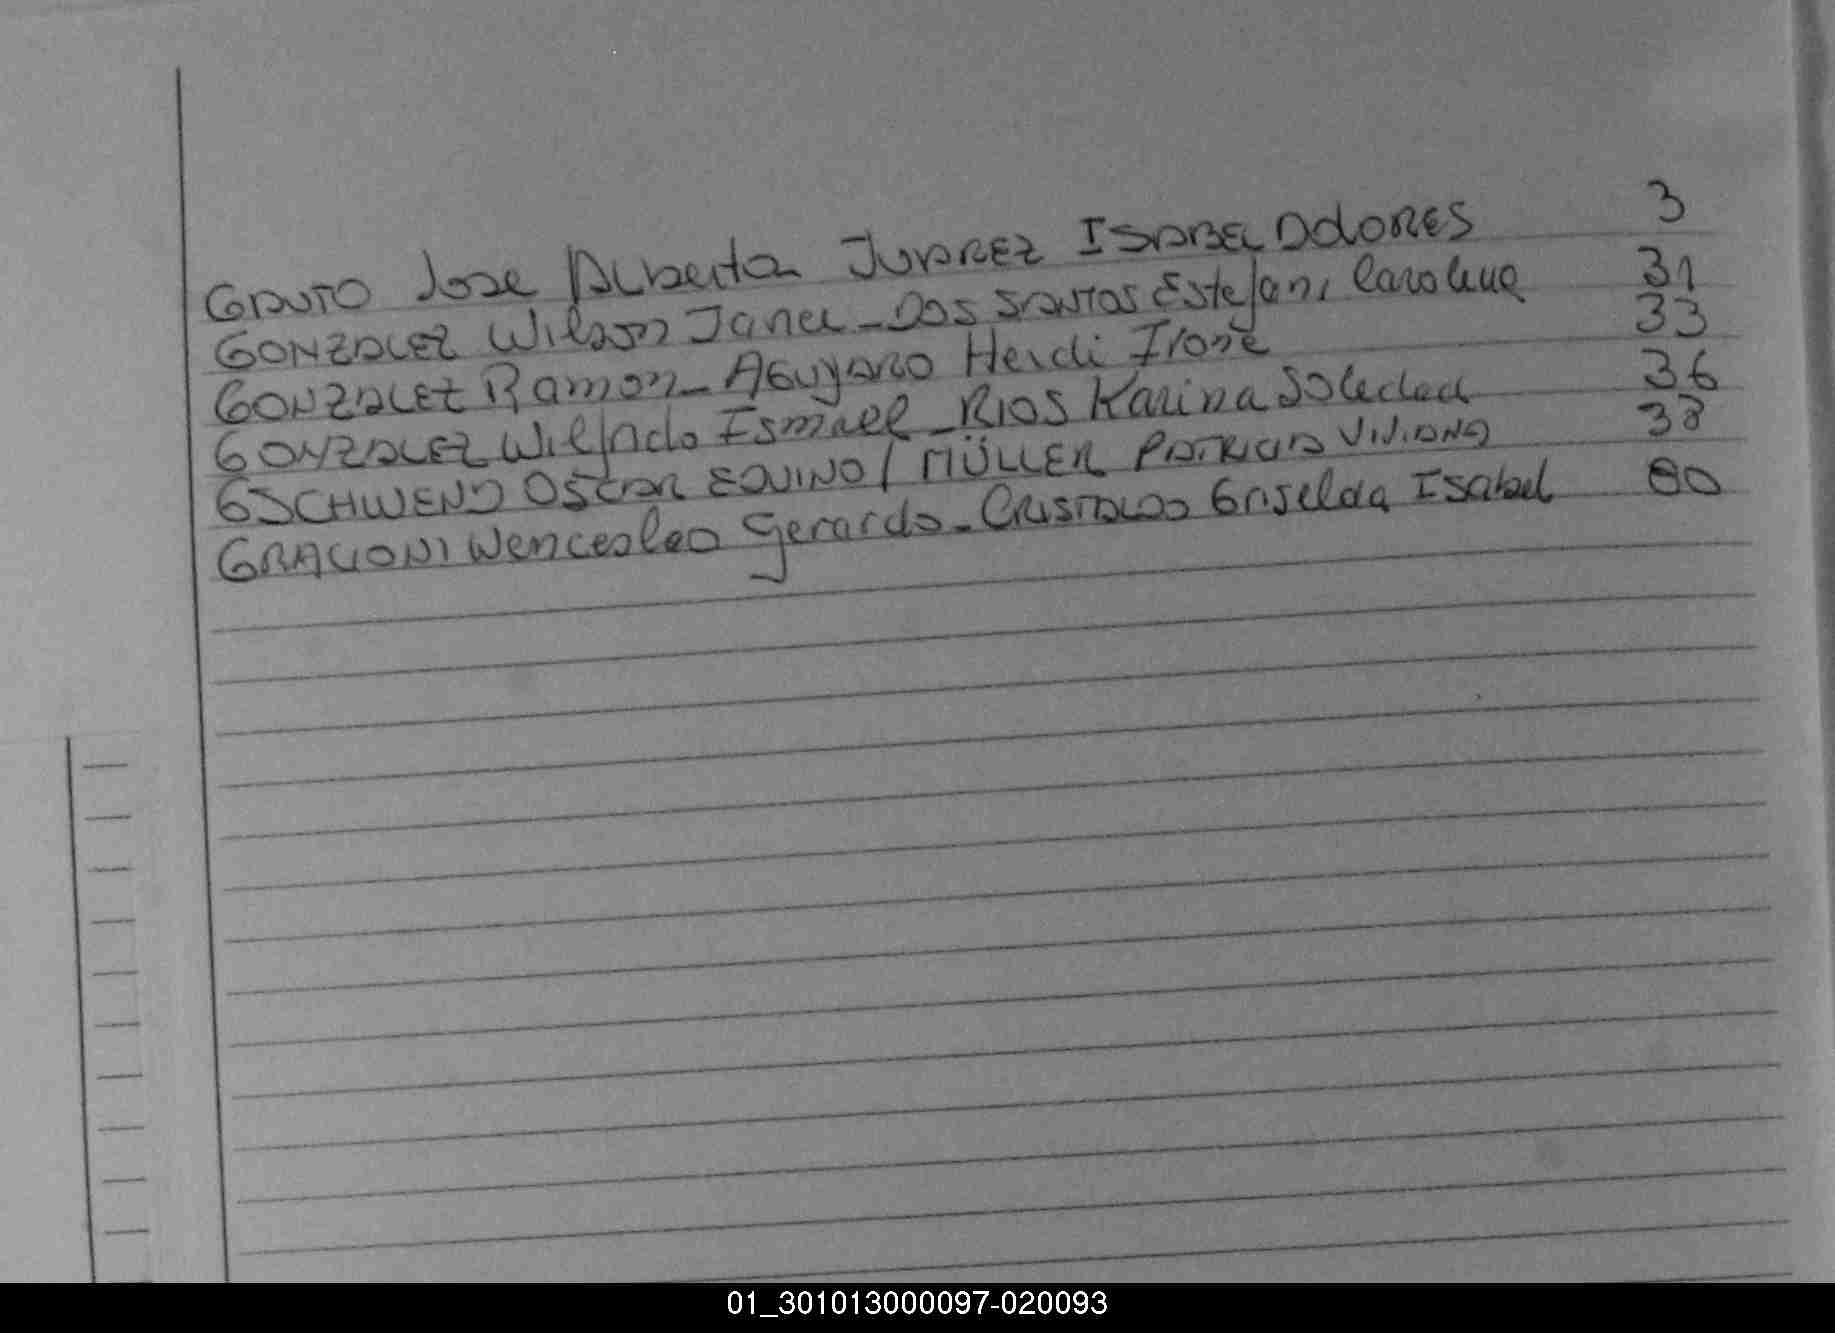 GAUTO Jose Alberto JUAREZ ISABEL DOLORES 3
GONZALEZ Wilson Janel - DOS SANTOS Estefani Carolina 31
GONZALEZ Ramon - AGUYARO Heidi Irone 33
GONZALEZ Wilfrido Ismael - RIOS Karina Soledad 36
GSCHWEND OSCAR EDUINO / MÜLLER PATRICIA VIVIANA 38
GRACIONI Wenceslao Gerardo - CRISTALDO Griselda Isabel 80
01_301013000097-020093